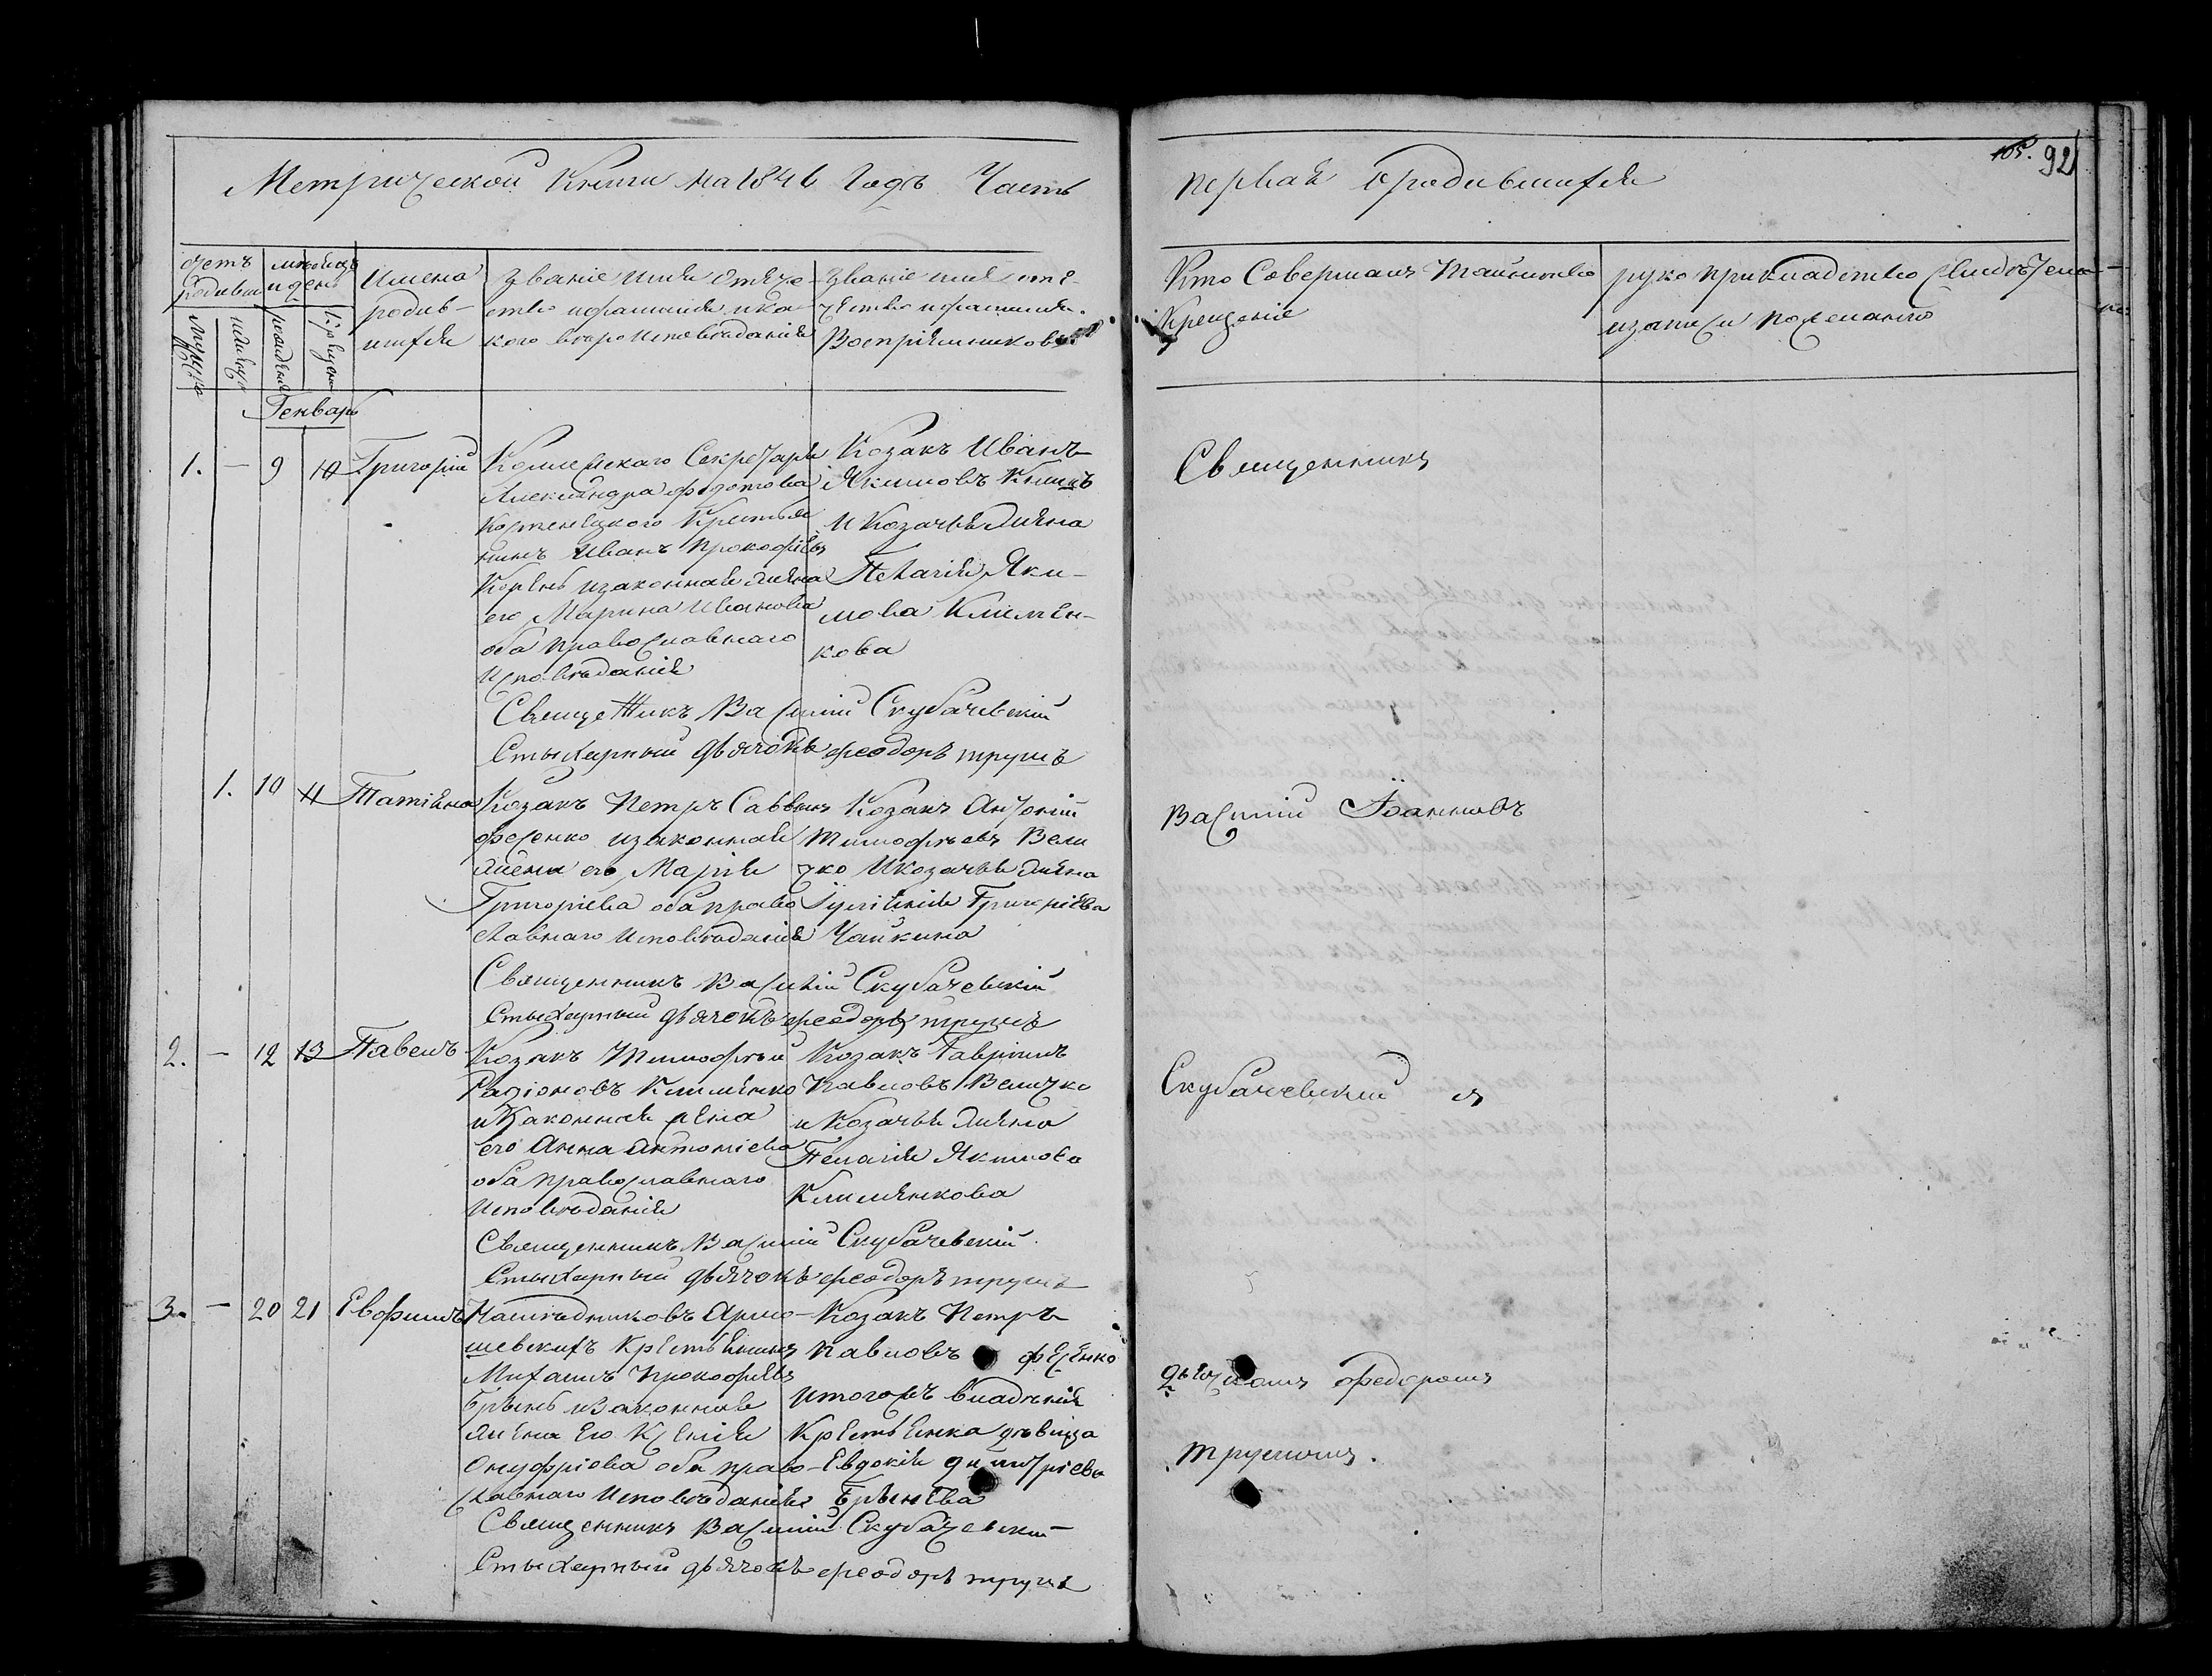 Метрической Книги на 1846 Годъ Часть
первая О родившихся
105. 92
Счетъ родивш
мѣсяцъ и день
Имена родив-
шихся
Званіе имя Отече-
ство и фамилія и ка-
кого вѣроисповѣданія
Званіе имя оте-
чество и фамилія.
Воспріемниковъ
Кто Совершалъ Таинство
Крещенія
рукоприкладство Свидѣтеле-
й записи по желанію
мужеска
женска
рожденія
Крещенія
Генварь
1. — 9 10 Григорій
Коллежскаго Секретаря
Александра Федотова
Крестья
нинъ Иванъ Прокофіевъ
и законная жена
его Марина Иванова
оба православнаго
Исповѣданія
Козакъ Иванъ
Якимовъ
и Козачья жена
Пелагія Яки-
мова Климен-
кова
Священникъ
Священникъ Василій Скубачевскій
Стыхарный дьячокъ Феодоръ Трушъ
1. 10 11 Татіяна
Козакъ Петръ Саввинъ
Фесенко и законная
жена его Марія
Григоріева оба право
славнаго исповѣданія
Козакъ Антоній
Тимофѣевъ Вели
чко и козачья жена
Іуліянія Григоріева
Чайкина
Василій Іоанновъ
Священникъ Василій Скубачевскій
Стыхарный дьячокъ Феодоръ Трушъ
2. — 12 13 Павелъ
Козакъ Тимофѣй
Радіоновъ Клименко
и законная жена
его Анна Антоніева
оба православнаго
исповѣданія
Козакъ Гавріилъ
Павловъ Величко
и Козачья жена
Пелагія Якимова
Клименкова
Скубачевскій съ
Священникъ Василій Скубачевскій
Стыхарный дьячокъ Феодоръ Трушъ
3. — 20 21 Евфимъ
Наслѣдниковъ Ярмо-
шевскихъ Крестьянинъ
Михаилъ Прокофіевъ
и законная
жена его Ксенія
Онуфріева оба право-
славнаго Исповѣданія
Козакъ Петръ
Павловъ Фесенко
и того жъ владѣнія
Крестьянка дѣвица
Евдокія Димитріева
дьячкомъ Федоромъ
Трушомъ.
Священникъ Василій Скубачевскій
Стыхарный дьячокъ Феодоръ Трушъ